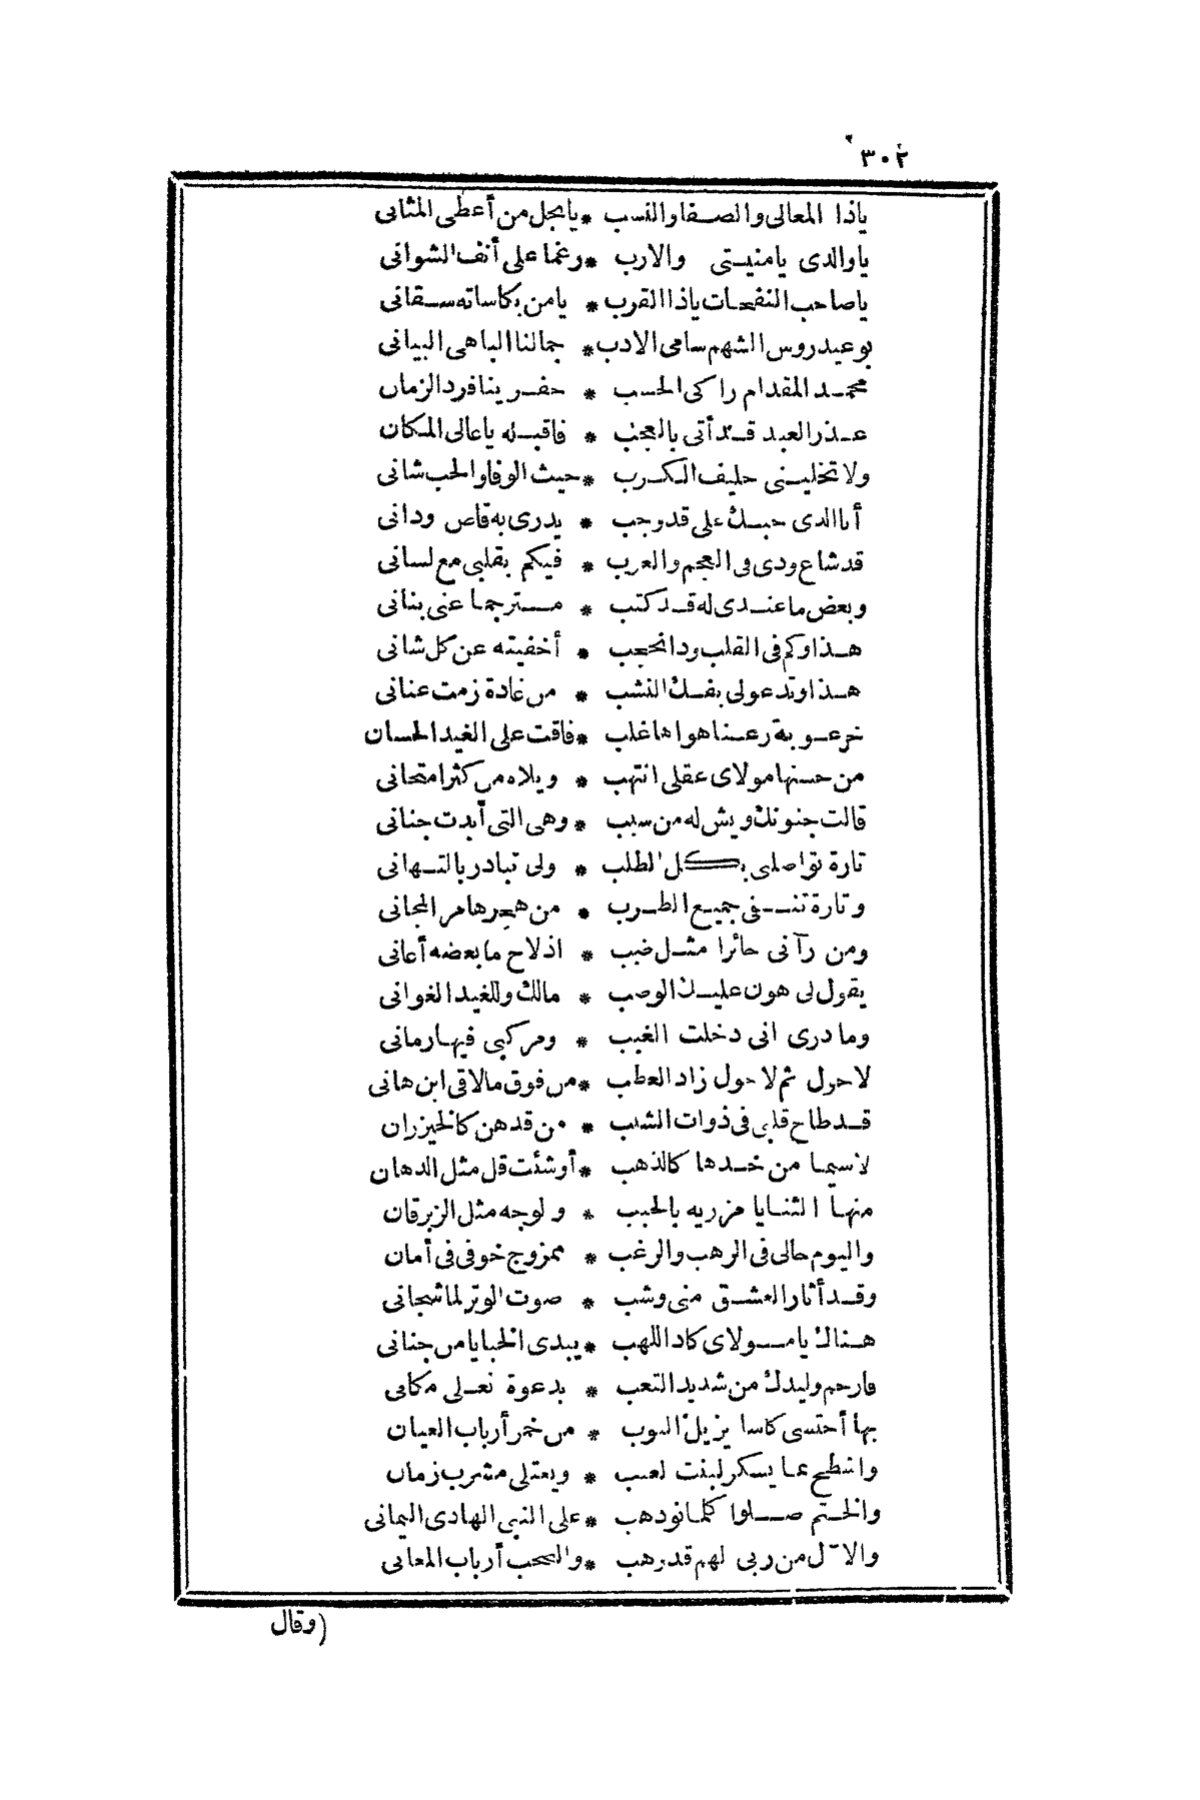 ٣٠٢
ياذا المعالى والصفا والنسب * يا بجل من أعطى المثانى
ياوالدى يامنيتى والارب * رغما على أنف الشوانى
ياصاحب النفحات ياذا القرب * يامن بكاساته سقانى
بوعيدروس الشهم سامى الادب * جمالنا الباهى البيانى
محمد المقدام راكى الحسب * حفرينا فرد الزمان
عذر العبد قد أتى بالعجب * فاقبله ياعالى المكان
ولا تخلينى حليف الكرب * حيث الوفا والحب شانى
أنا الذى حبك على قد وجب * يدرى به قاص ودانى
قد شاع ودى فى العجم والعرب * فيكم بقلبى مع لسانى
وبعض ما عندى له قد كتب * مترجما عنى بنانى
هذا وكم فى القلب ود انحجب * أخفيته عن كل شانى
هذا وتدعو لى بفك النشب * من غادة زمت عنانى
خرعوبة رعنا هواها غلب * فاقت على الغيد الحسان
من حسنها مولاى عقلى انتهب * ويلاه من كثر امتحانى
قالت جنونك ويش له من سبب * وهى التى أبدت جنانى
تارة تواصلنى بكل الطلب * ولى تبادر بالتهانى
وتارة تنفى جميع الطرب * من هجرها مر المجانى
ومن رآنى حائرا مثل ضب * اذ لاح ما بعضه أعانى
يقول لى هون عليك الوصب * مالك وللغيد الغوانى
وما درى انى دخلت الغبب * ومركبى فيها رمانى
لا حول ثم لا حول زاد العطب * من فوق مالاقى ابن هانى
قد طاح قلبى فى ذوات الشنب * من قدهن كالخيزران
لا سيما من خدها كالذهب * أو شئت قل مثل الدهان
منها الثنايا مزريه بالحبب * ولوجه مثل الزبرقان
واليوم حالى فى الرهب والرغب * ممزوج خوفى فى أمان
وقد أثار العشق منى وشب * صوت الوتر لما شجانى
هناك يامولاى كاد اللهب * يبدى الخبايا من جنانى
فارحم وليدك من شديد التعب * بدعوة تعلى مكانى
بها أحتسى كاسا يزيل النوب * من خمر أرباب العيان
واشطح بما يسكر لبنت لعنب * ويعتلى مشرب زمان
والختم صلوا كلما نود هب * على النبى الهادى اليمانى
والآل من ربى لهم قد رهب * والصحب أرباب المعانى
(وقال